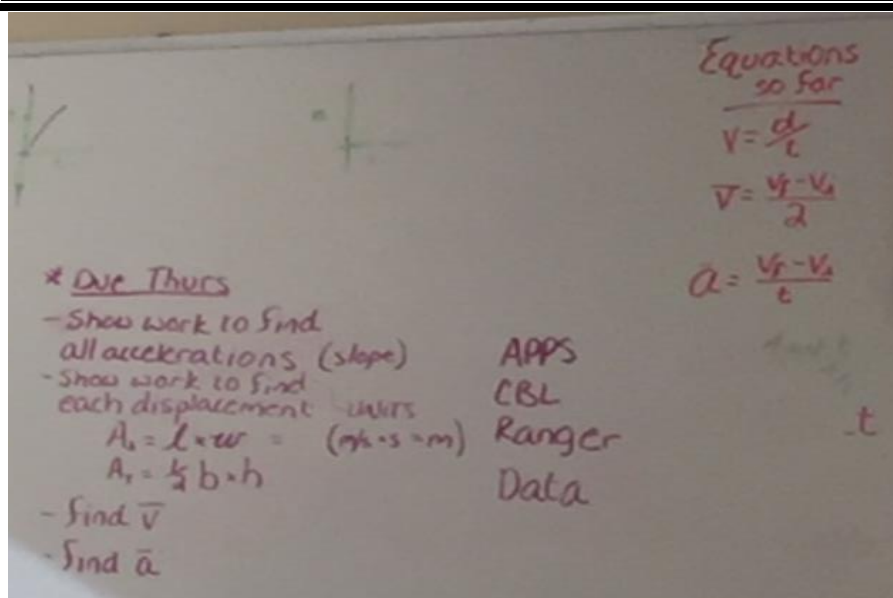 Equations
so far
V = d/t
V̅ = Vf - Vi / 2
a = Vf - Vi / t
* Due Thurs
- Show work to find
all accelerations (slope)
- Show work to find
each displacement units
A = l × w = (m/s · s = m)
A = 1/2 b · h
- find v̅
- find a̅
APPS
CBL
Ranger
Data
t